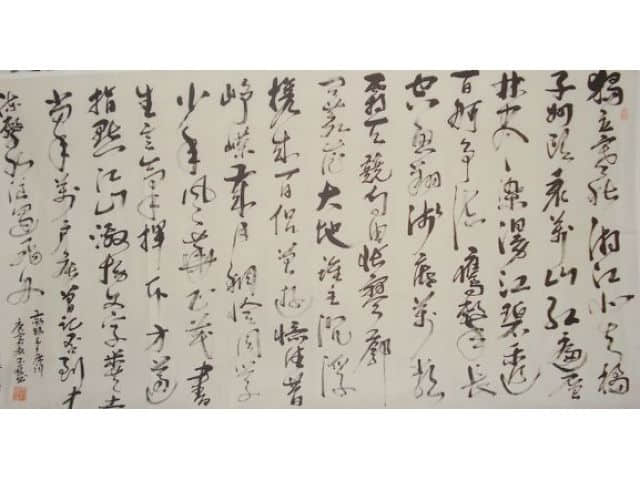 独立寒秋湘江北去橘
子洲头看万山红遍层
林尽染漫江碧透
百舸争流鹰击长
空鱼翔浅底万类
霜天竞自由怅寥廓
问苍茫大地谁主沉浮
携来百侣曾游忆往昔
峥嵘岁月稠恰同学
少年风华正茂书
生意气挥斥方遒
指点江山激扬文字粪土
当年万户侯曾记否到中
流击水浪遏飞舟